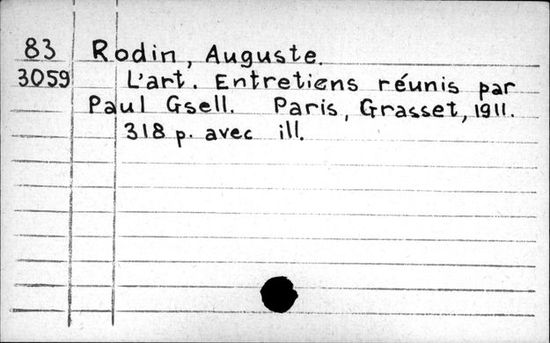 83 Rodin, Auguste.
3059 L'art. Entretiens réunis par
Paul Gsell. Paris, Grasset, 1911.
318 p. avec ill.